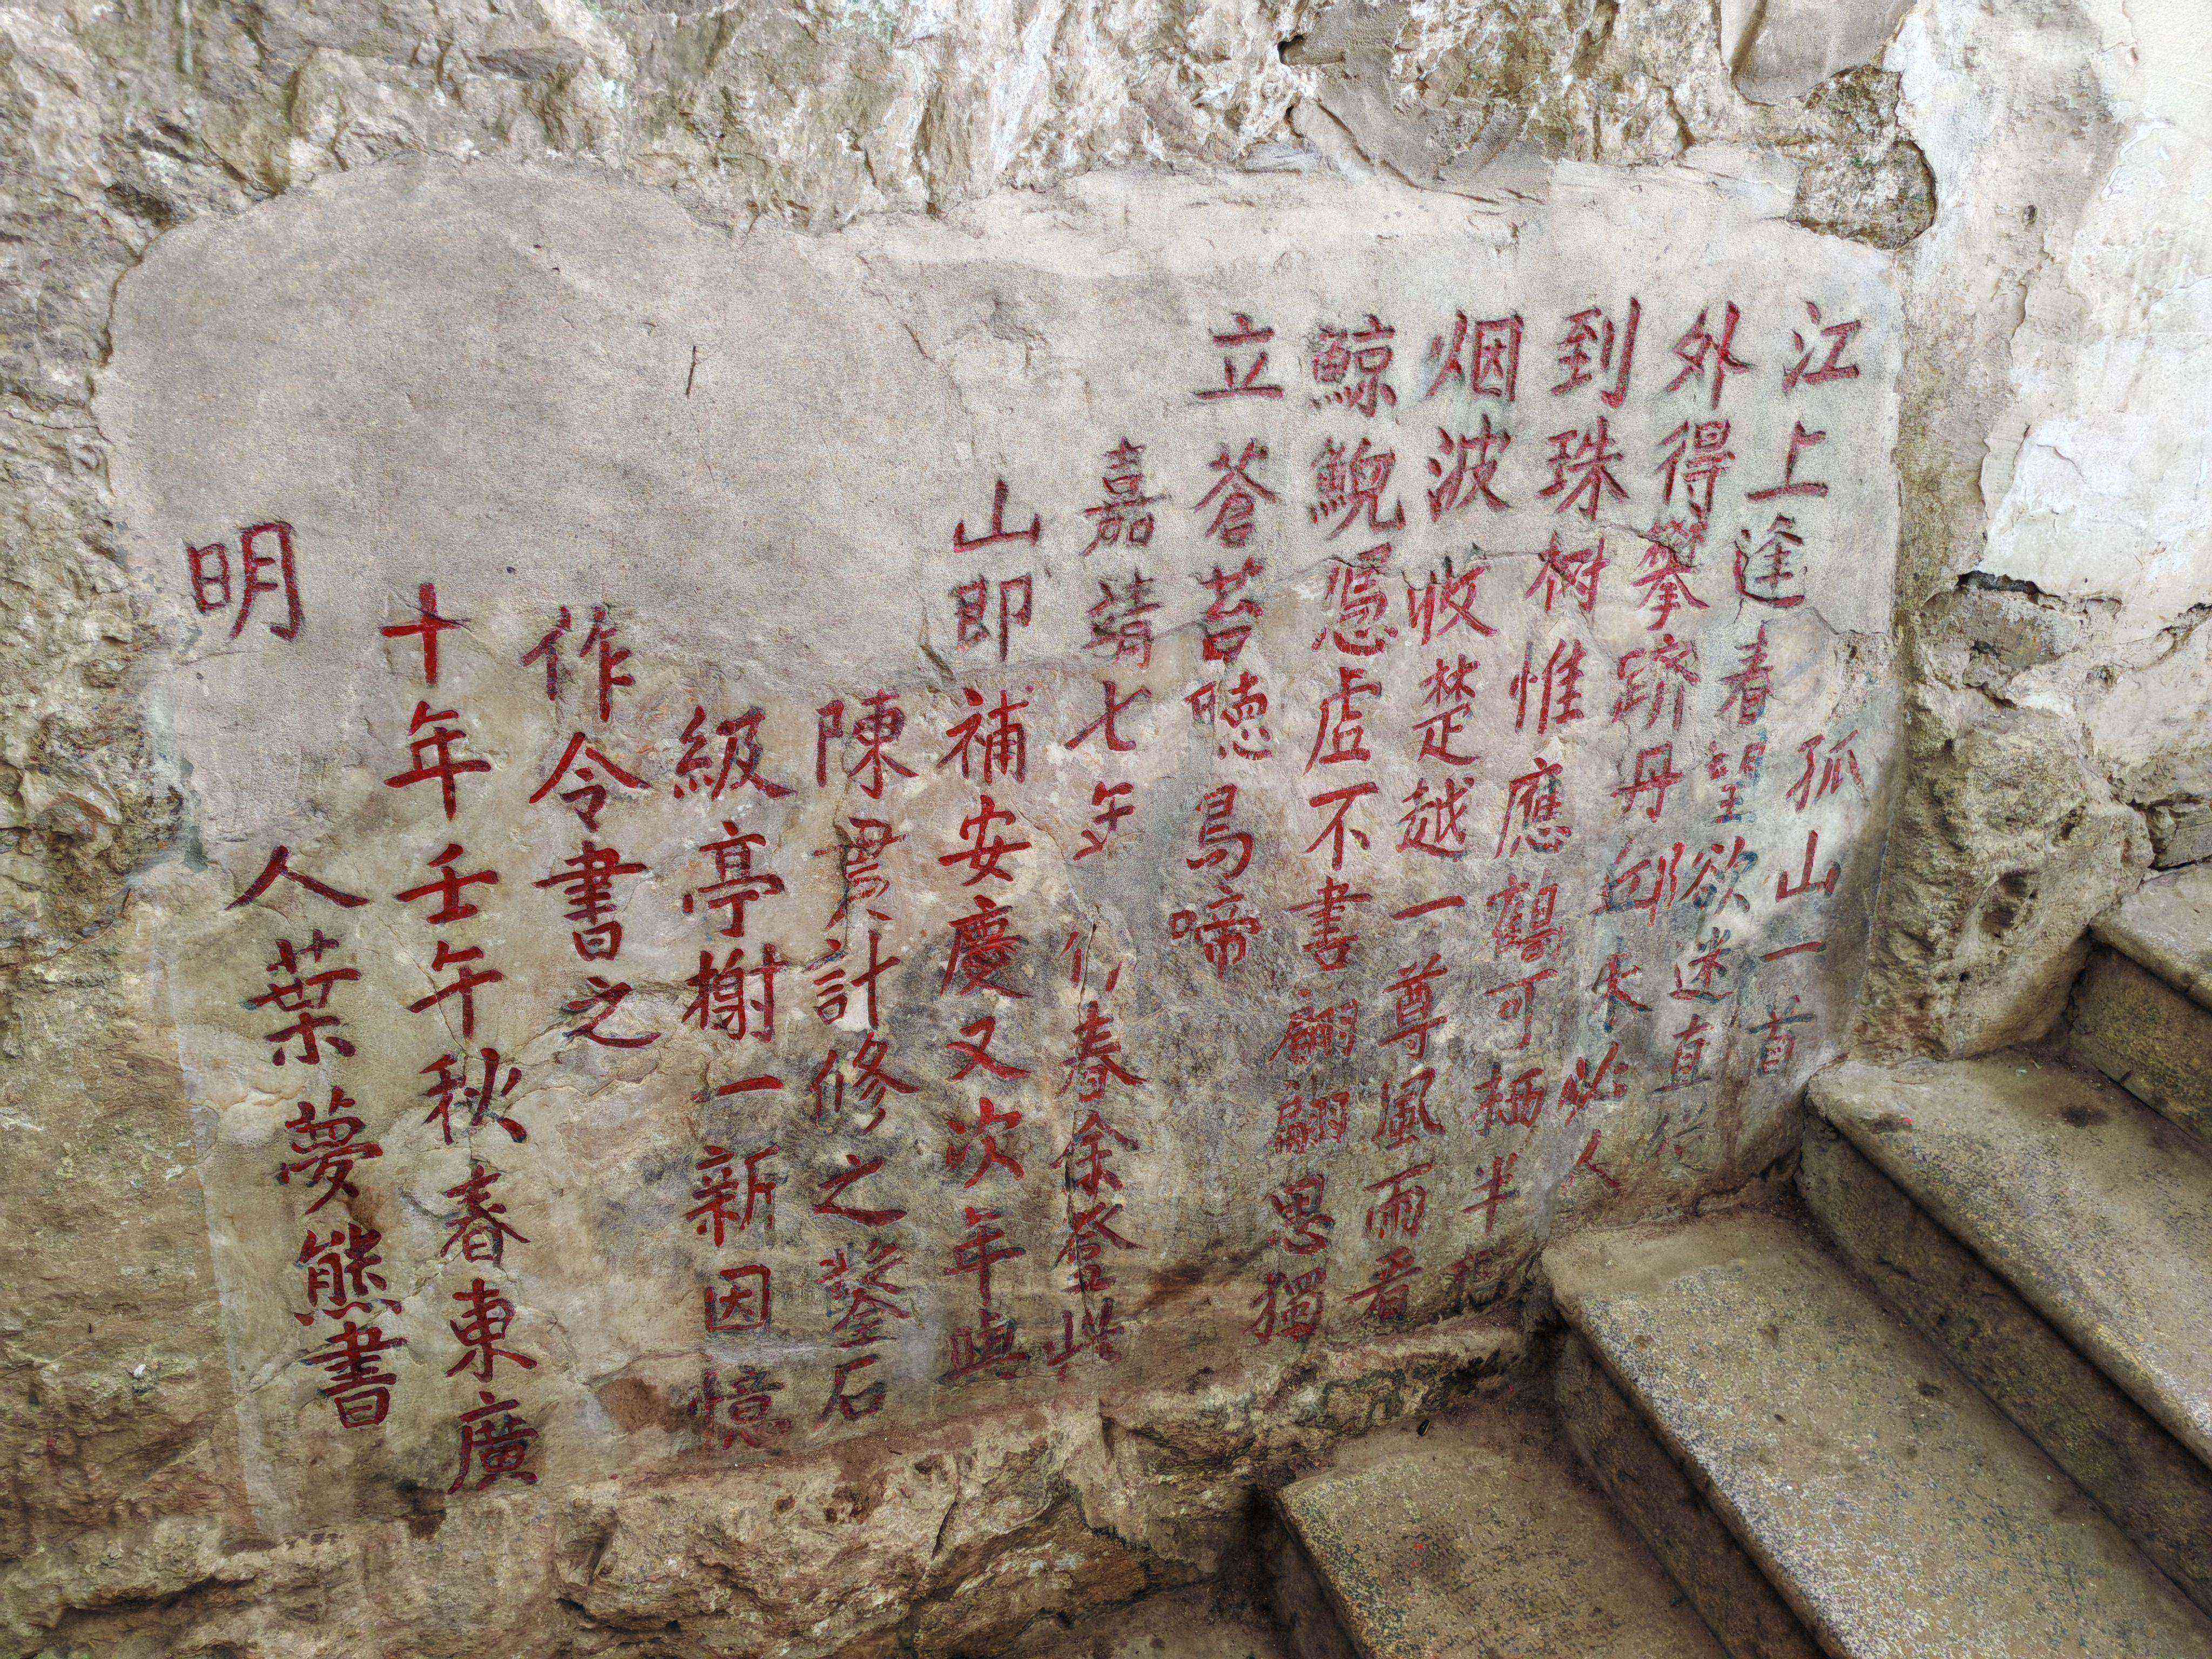 孤山一首
江上逢春望欲迷直
外得攀躋丹邱木必人
到珠树惟應鶴可栖半
烟波收楚越一尊風雨看
鯨鯢憑虚不書翩翩思獨
立蒼苔聴鳥啼
嘉靖七年仲春余登此
山即補安慶又次年與
陳君計修之鑿石
級亭榭一新因憶
作令書之
十年壬午秋春東廣
明人葉夢熊書